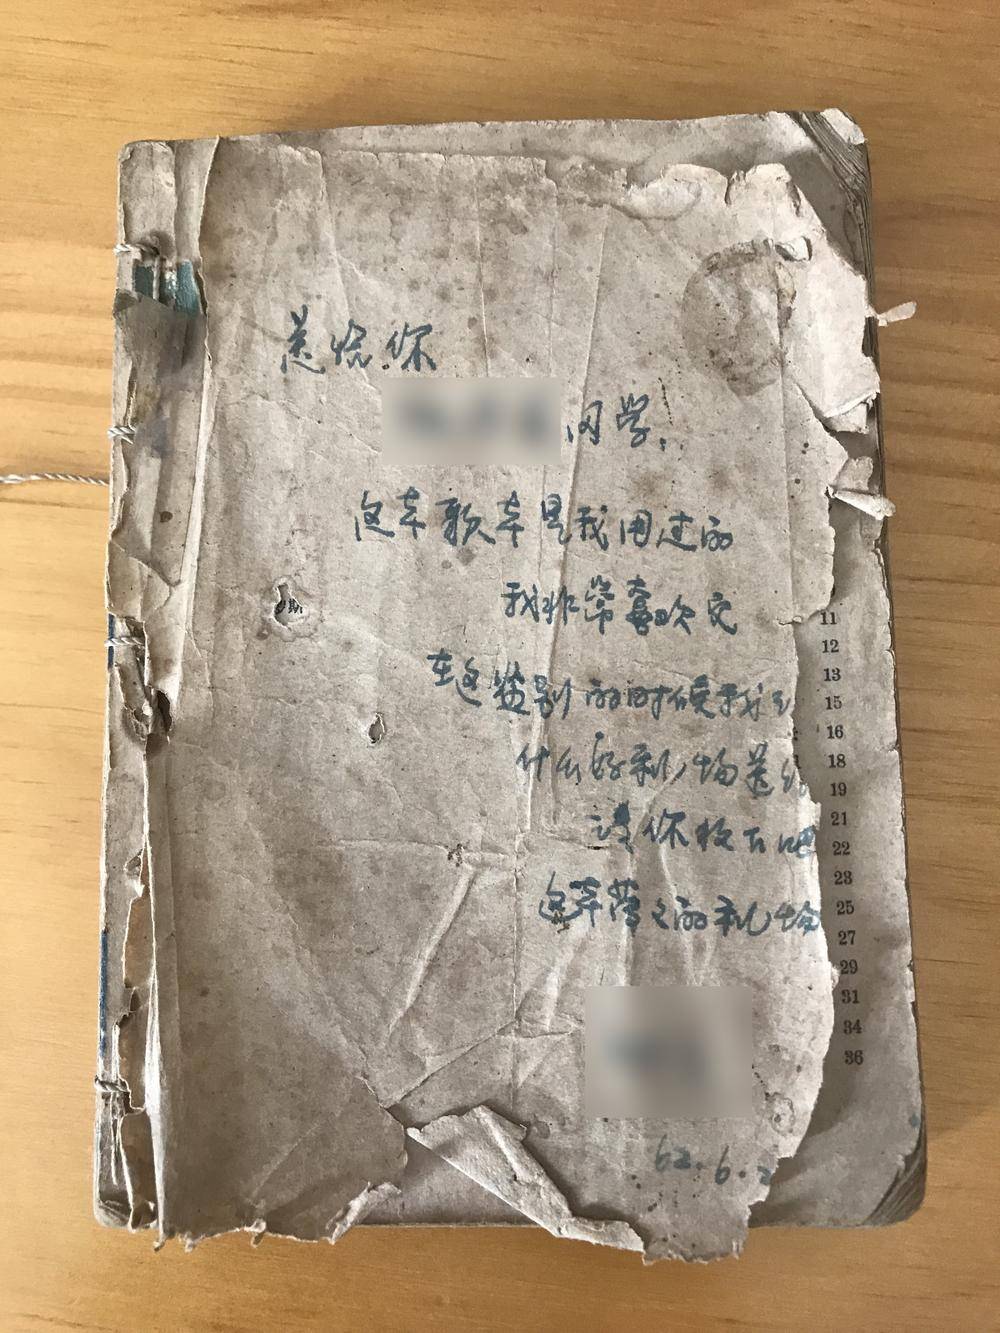 送给你
同学：
这本歌本是我用过的
我非常喜欢它
在这鉴别的时候我
什么好礼物送给
请你收下吧
这本薄薄的礼物
62.6.2
斯
11
12
13
15
16
18
19
21
22
23
25
27
29
31
34
36